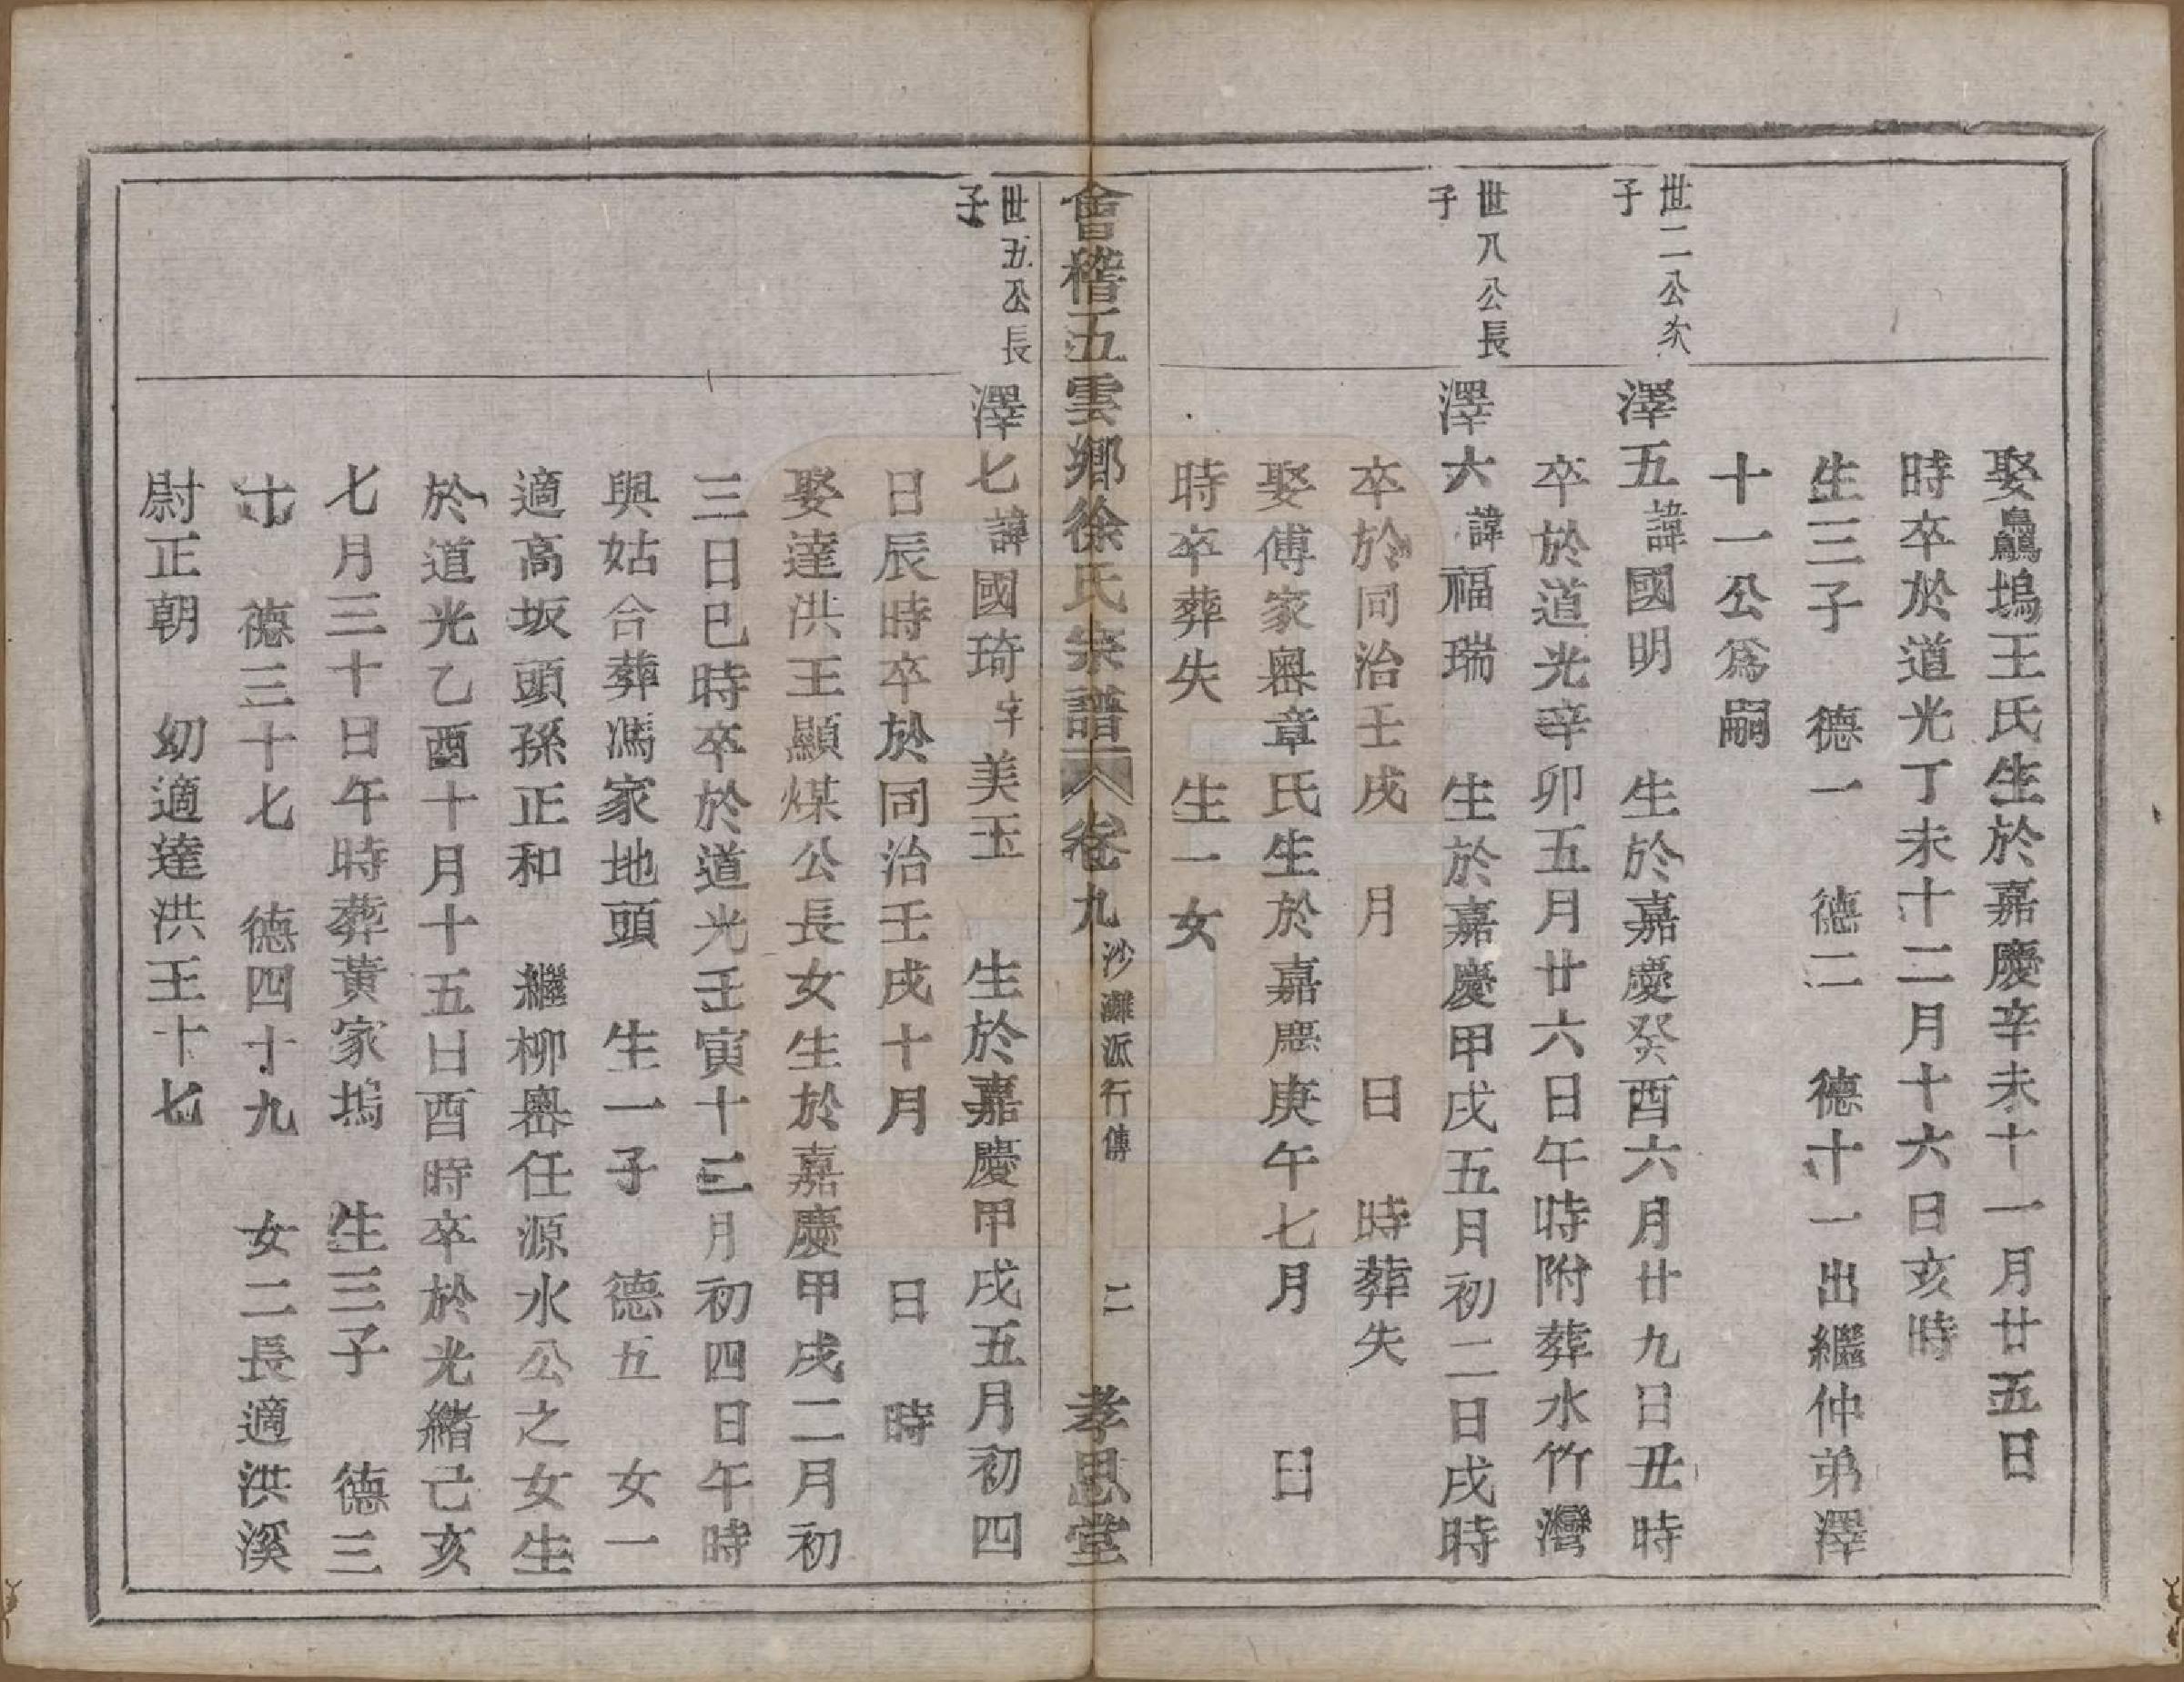 娶鱻塢王氏生於嘉慶辛未十一月廿五日
時卒於道光丁未十二月十六日亥時
生三子　德一　德二　德十一出繼仲弟澤
十一公爲嗣
世二公次子
澤五諱國明　生於嘉慶癸酉六月廿九日丑時
卒於道光辛卯五月廿六日午時附葬水竹灣
世八公長子
澤六諱福瑞　生於嘉慶甲戌五月初二日戌時
卒於同治壬戌　月　日　時葬失
娶傅家嶴章氏生於嘉慶庚午七月　日
時卒葬失　生一女
會稽五雲鄉徐氏宗譜　卷九　沙灘派行傳　二　孝思堂
世五公長子
澤七諱國琦字美玉　生於嘉慶甲戌五月初四
日辰時卒於同治壬戌十月　日　時
娶達洪王顯煤公長女生於嘉慶甲戌二月初
三日巳時卒於道光壬寅十二月初四日午時
與姑合葬馮家地頭　生一子　德五　女一
適高坂頭孫正和　繼柳嶴任源水公之女生
於道光乙酉十月十五日酉時卒於光緒己亥
七月三十日午時葬黃家塢　生三子　德三
十　德三十七　德四十九　女二長適洪溪
尉正朝　幼適達洪王十七